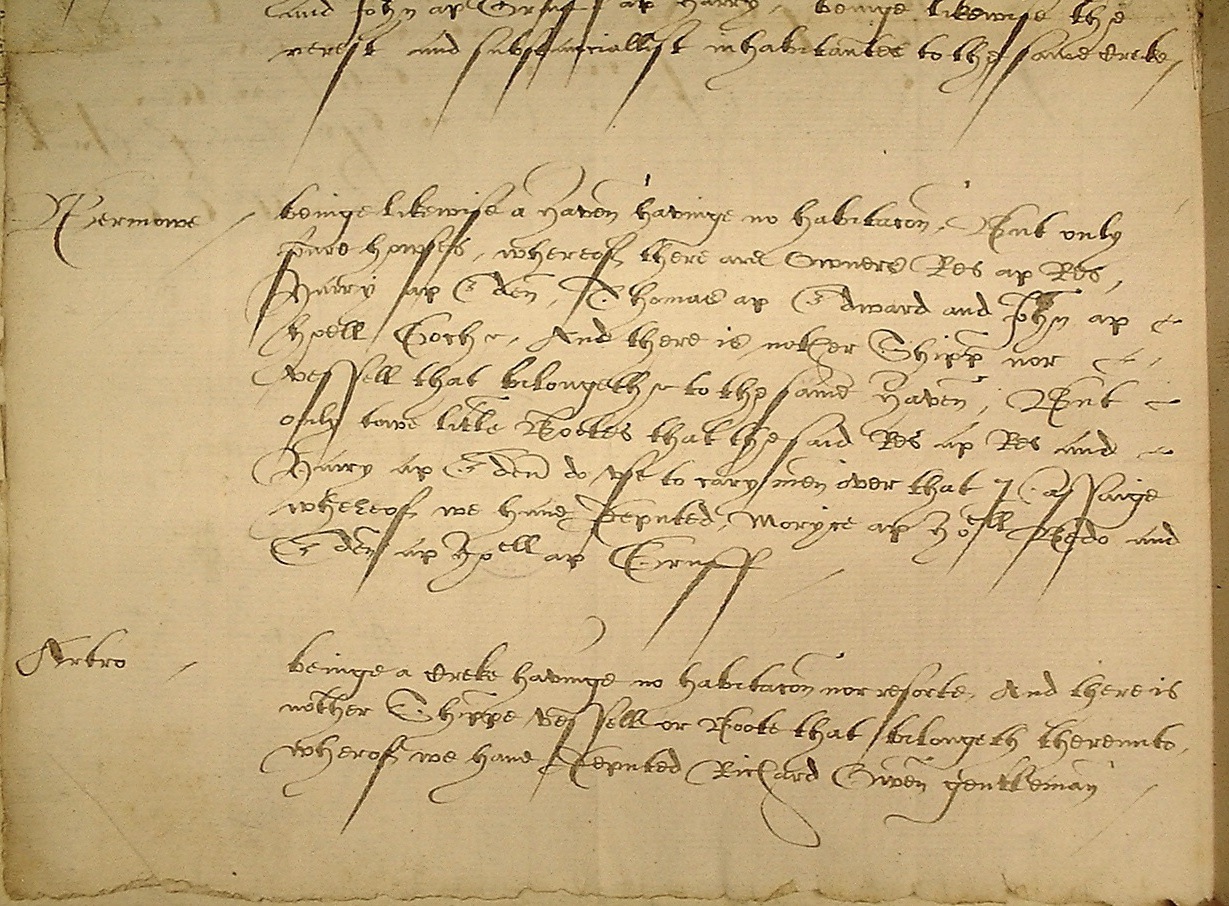 and John ap Gruff ap Harry, beinge likewise the
nerest and substanciallist inhabitantes to the same Creke,
Bermowe / beinge likewise a Haven havinge no habitacon, But only
foure howses, whereof there are Owners Res ap Res,
Harry ap Eden, Thomas ap Edward and John ap
Hoell Goche, And there is nother Shipp nor
vessell that belongethe to the same Haven, But
only towe litle Bootes that the said Res ap Res and
Harry ap Eden do use to cary men over that Passaige
whereof we have Deputed, Moryce ap Hoell Bedo and
Eden ap Hoell ap Gruff /
Artro / beinge a Creke havinge no habitacon nor resorte. And there is
nother Shippe, vessell or Boote that belongeth thereunto,
wherof we have Deputed Richard Owen gentleman /